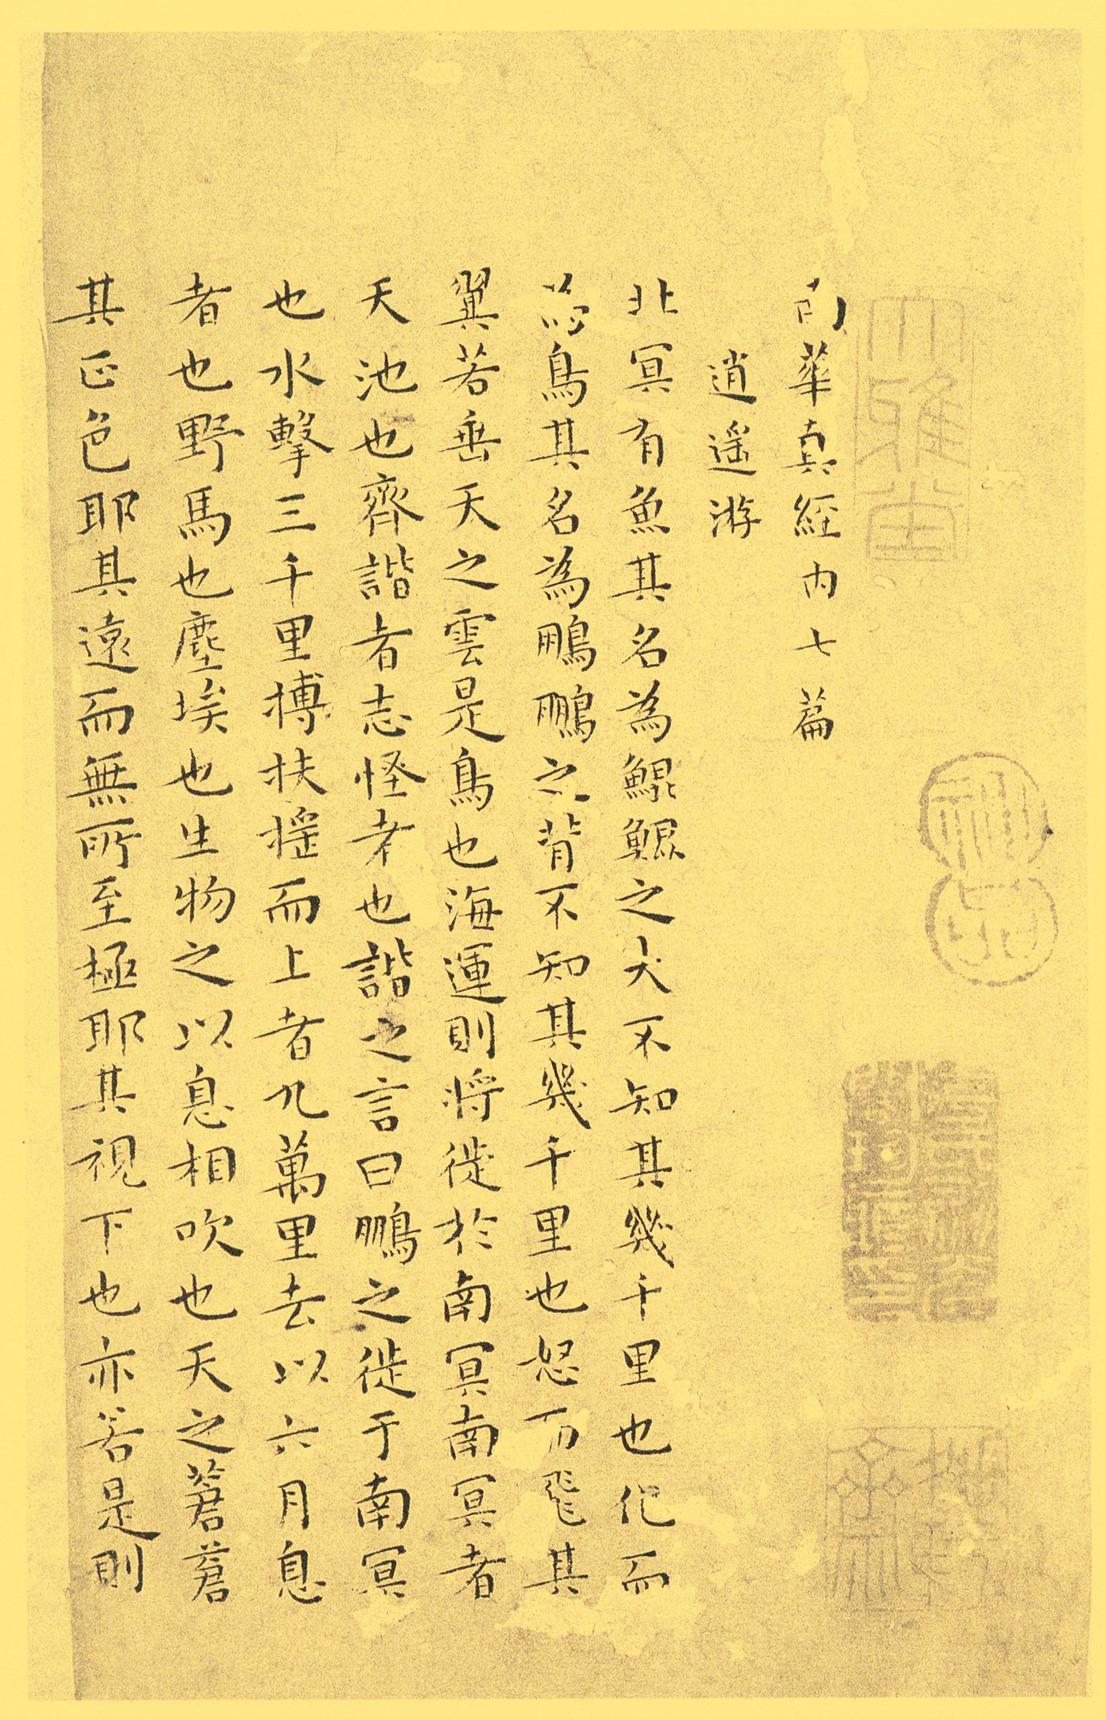 南華真經內七篇
逍遥游
北冥有魚其名為鯤鯤之大不知其幾千里也化而
為鳥其名為鵬鵬之背不知其幾千里也怒而飛其
翼若垂天之雲是鳥也海運則将徙於南冥南冥者
天池也齊諧者志怪者也諧之言曰鵬之徙于南冥
也水擊三千里摶扶摇而上者九萬里去以六月息
者也野馬也塵埃也生物之以息相吹也天之蒼蒼
其正色耶其遠而無所至極耶其視下也亦若是則